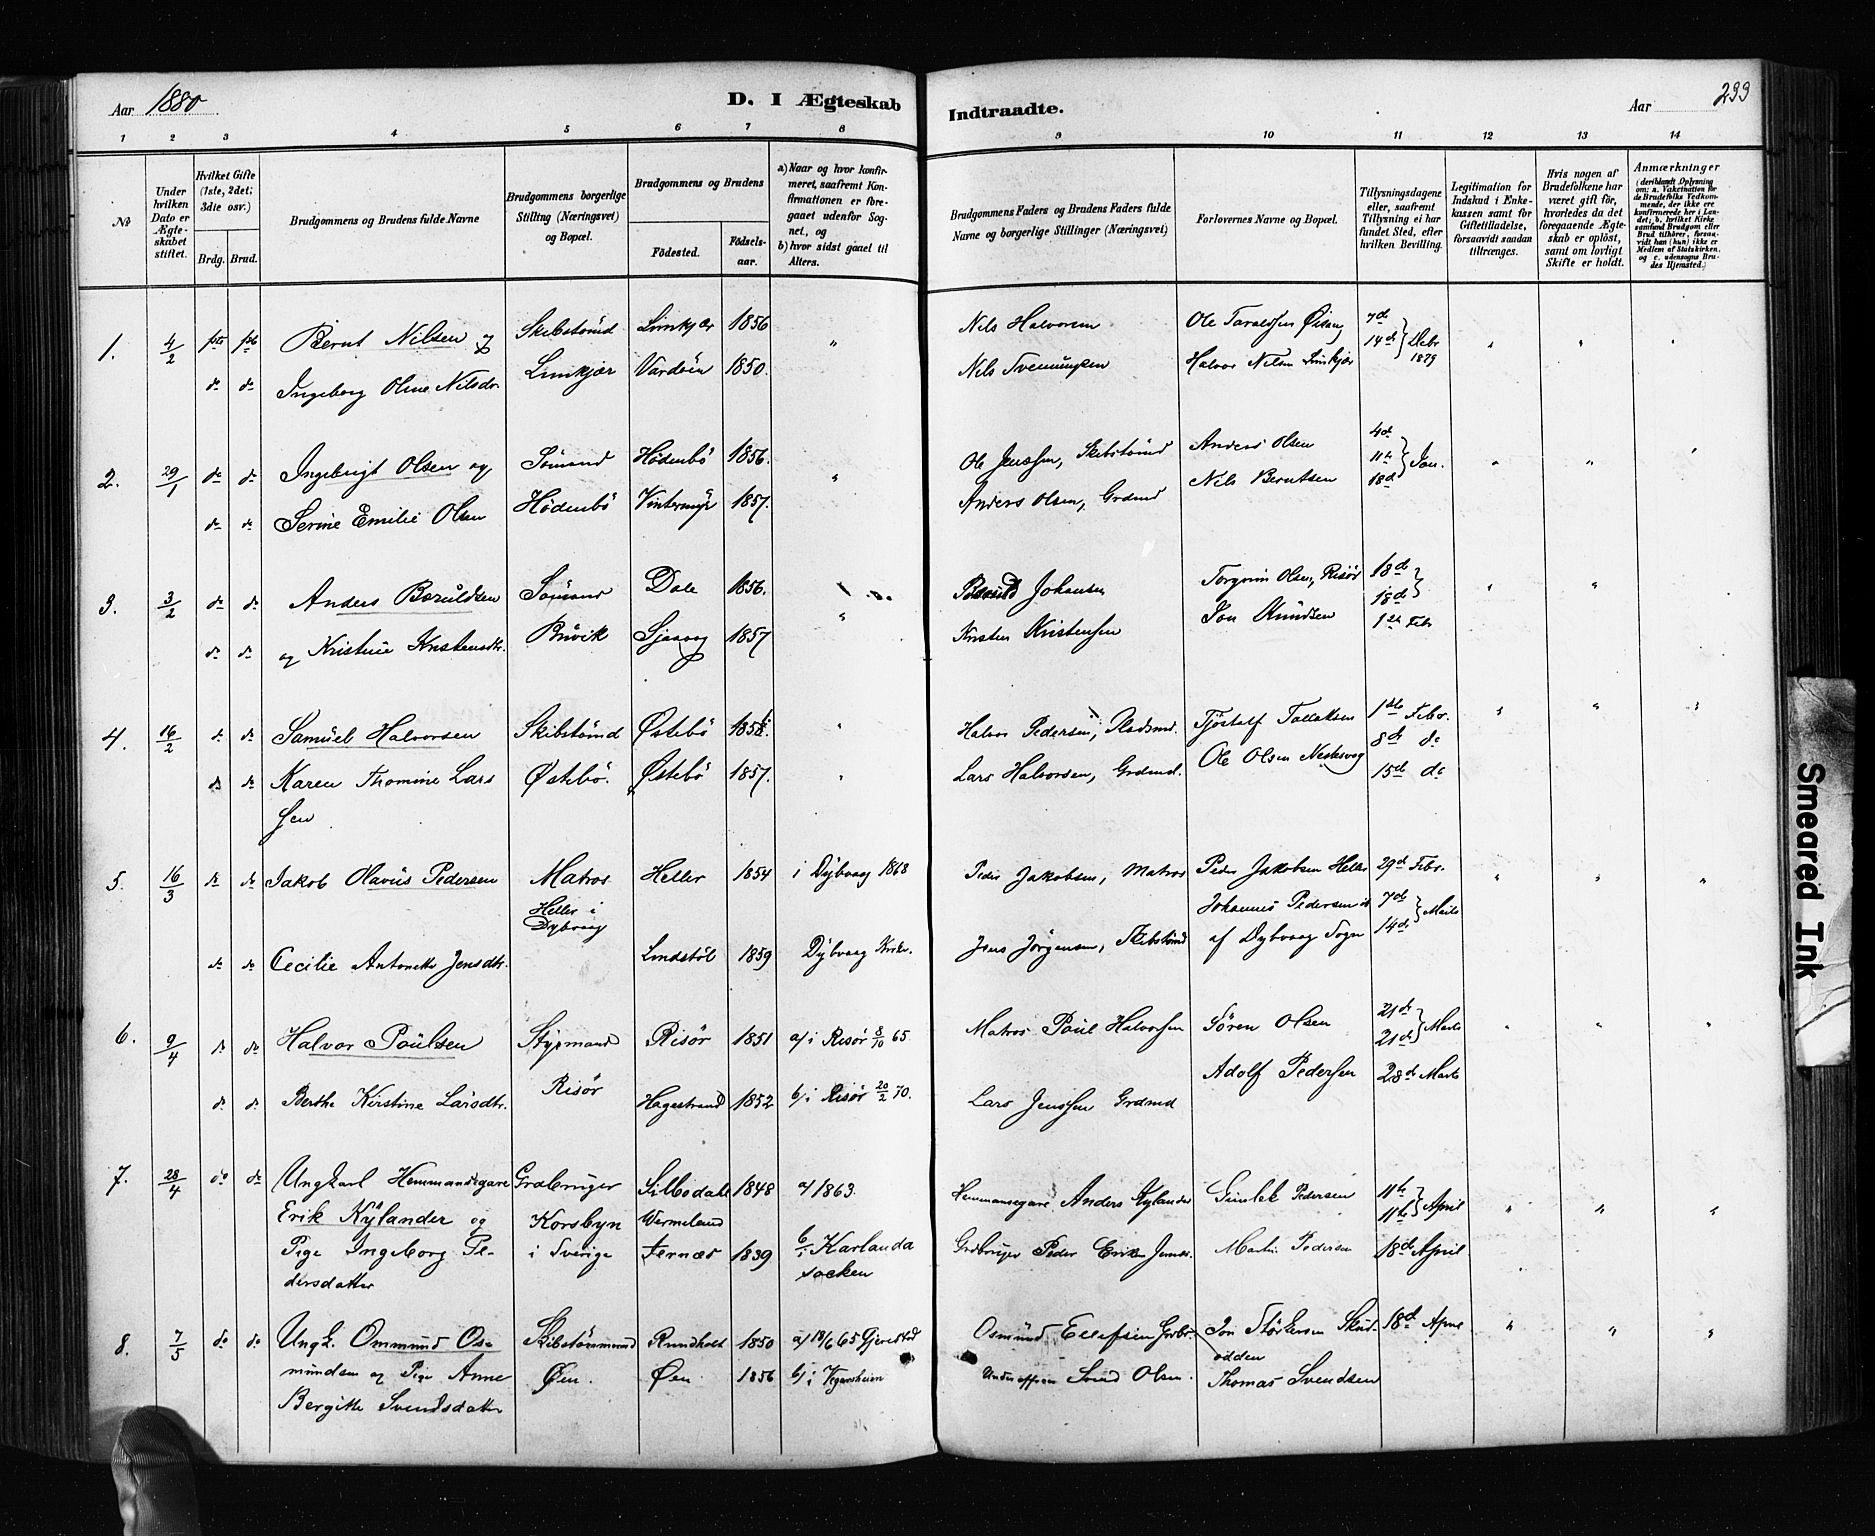 Aar 1880
D. I Ægteskab
Indtraadte.
Aar
299
1 2 3 4 5 6 7 8 9 10 11 12 13 14
№
Under hvilken Dato er Ægteskabet stiftet.
Hvilket Gifte (1ste, 2det; 3die osv.)
Brdg. Brud.
Brudgommens og Brudens fulde Navne
Brudgommens borgerlige Stilling (Næringsvei) og Bopæl.
Brudgommens og Brudens
Fødested.
Fødselsaar.
a) Naar og hvor konfirmeret, saafremt Konfirmationen er foregaaet udenfor Sognet, og
b) hvor sidst gaaet til Alters.
Brudgommens Faders og Brudens Faders fulde Navne og borgerlige Stillinger (Næringsvei)
Forlovernes Navne og Bopæl.
Tillysningsdagene eller, saafremt Tillysning ei har fundet Sted, efter hvilken Bevilling.
Legitimation for Indskud i Enkekassen samt for Giftetilladelse, forsaavidt saadan tiltrænges.
Hvis nogen af Brudefolkene har været gift før, hvorledes da det foregaaende Ægteskab er opløst, samt om lovligt Skifte er holdt.
Anmærkninger
(deriblandt Oplysning om: a. Vaksination for de Brudefolks Vedkommende, der ikke ere konfirmerede her i Landet; b. hvilket Kirkesamfund Brudgom eller Brud tilhører, forsaavidt han (hun) ikke er Medlem af Statskirken, og c. udensogns Brudes Hjemsted.)
1. 4/2 Bernt Nilsen og Skibstømd Limkjær 1856 " Nils Halvorsen Ole Taraldsen 7d
Ingeborg Oline Nilsdr. Limkjær Vardøen 1850. Nils Svenningsen Halvor Nilsen Limkjær 14d Debr 1879
2. 29/1 do do Ingebrigt Olsen og Sømand Hødnebø 1856. " Ole Jenssen, Skibstømd Anders Olsen 4d
do do Serine Emilie Olsen Hødenbø Vintermyr 1857. Anders Olsen, Grdmd Nils Berntsen 11te 18d Jan.
3. 3/2 do do Anders Baruldsen Sømand Dale 1856. Johansen Torgrim Olsen, Risør 18d
do do og Kristine Kristensdtr. Buvik 1857 " Kristen Kristensen Jon Knudsen 18d 1ste Febr
4. 16/2 do do Samuel Halvorsen Skibstømd Østebø " Halvor Pedersen, Pladsmd. Tjøstolf Tallaksen 1ste Febr.
do do Karen Thomine Lars Østebø. Østebø 1857. " Lars Halvorsen, Grdmd. Ole Olsen 8de do
sen 15de do
5. 16/3 do do Jakob Olavus Pedersen Matros Heller 1854 i Dybvaag 1868 Peder Jakobsen, Matros Peder Jakobsen Heller 29d Febr.
Heller i Dybvaag Johannes Pedersen 7de
do do Cecilie Antonette Jensdtr. Lindstøl 1859 Dybvaag Kirke. Jens Jørgensen, Skibstømd af Dybvaag Sogn 14de Marts
6. 9/4 do do Halvor Poulsen Styrmand Risør 1851 a/ i Risør 8/10 65. Matros Poul Halvorsen Søren Olsen 21de
21de Marts
do do Berthe Kirstine Larsdtr. Risør Hagestrand 1852 b/ i Risør 20/2 70. Lars Jenssen Grdmd Adolf Pedersen 28d Marts
7. 28/4 do do Ungkarl Hemmansegare Grdbruger Sillbodale 1848 a/ 1863. Hemmansegare Anders Kylander Gunlek Pedersen 11te
Erik Kylander og Korsbyn Wermeland 11te April
Pige Ingeborg Pe- i Sverige Jernæs 1839 b/i Karlanda Grdbruger Peder Martin Pedersen 18d April
dersdatter socken
8. 7/5 do do Ungk. Ommund Os- Skibstømmmd Rundholt 1850 a/ 18/6 65 Gjerestad Osmund Ellefsen Grdbr. Jon 18d April
mundsen og Pige Anne Øen. Øen 1856 b/ i Vegarsheien Underofficer Svend Olsen. odden
Bergitte Svendsdatter Thomas Svendsen
Smeared Ink